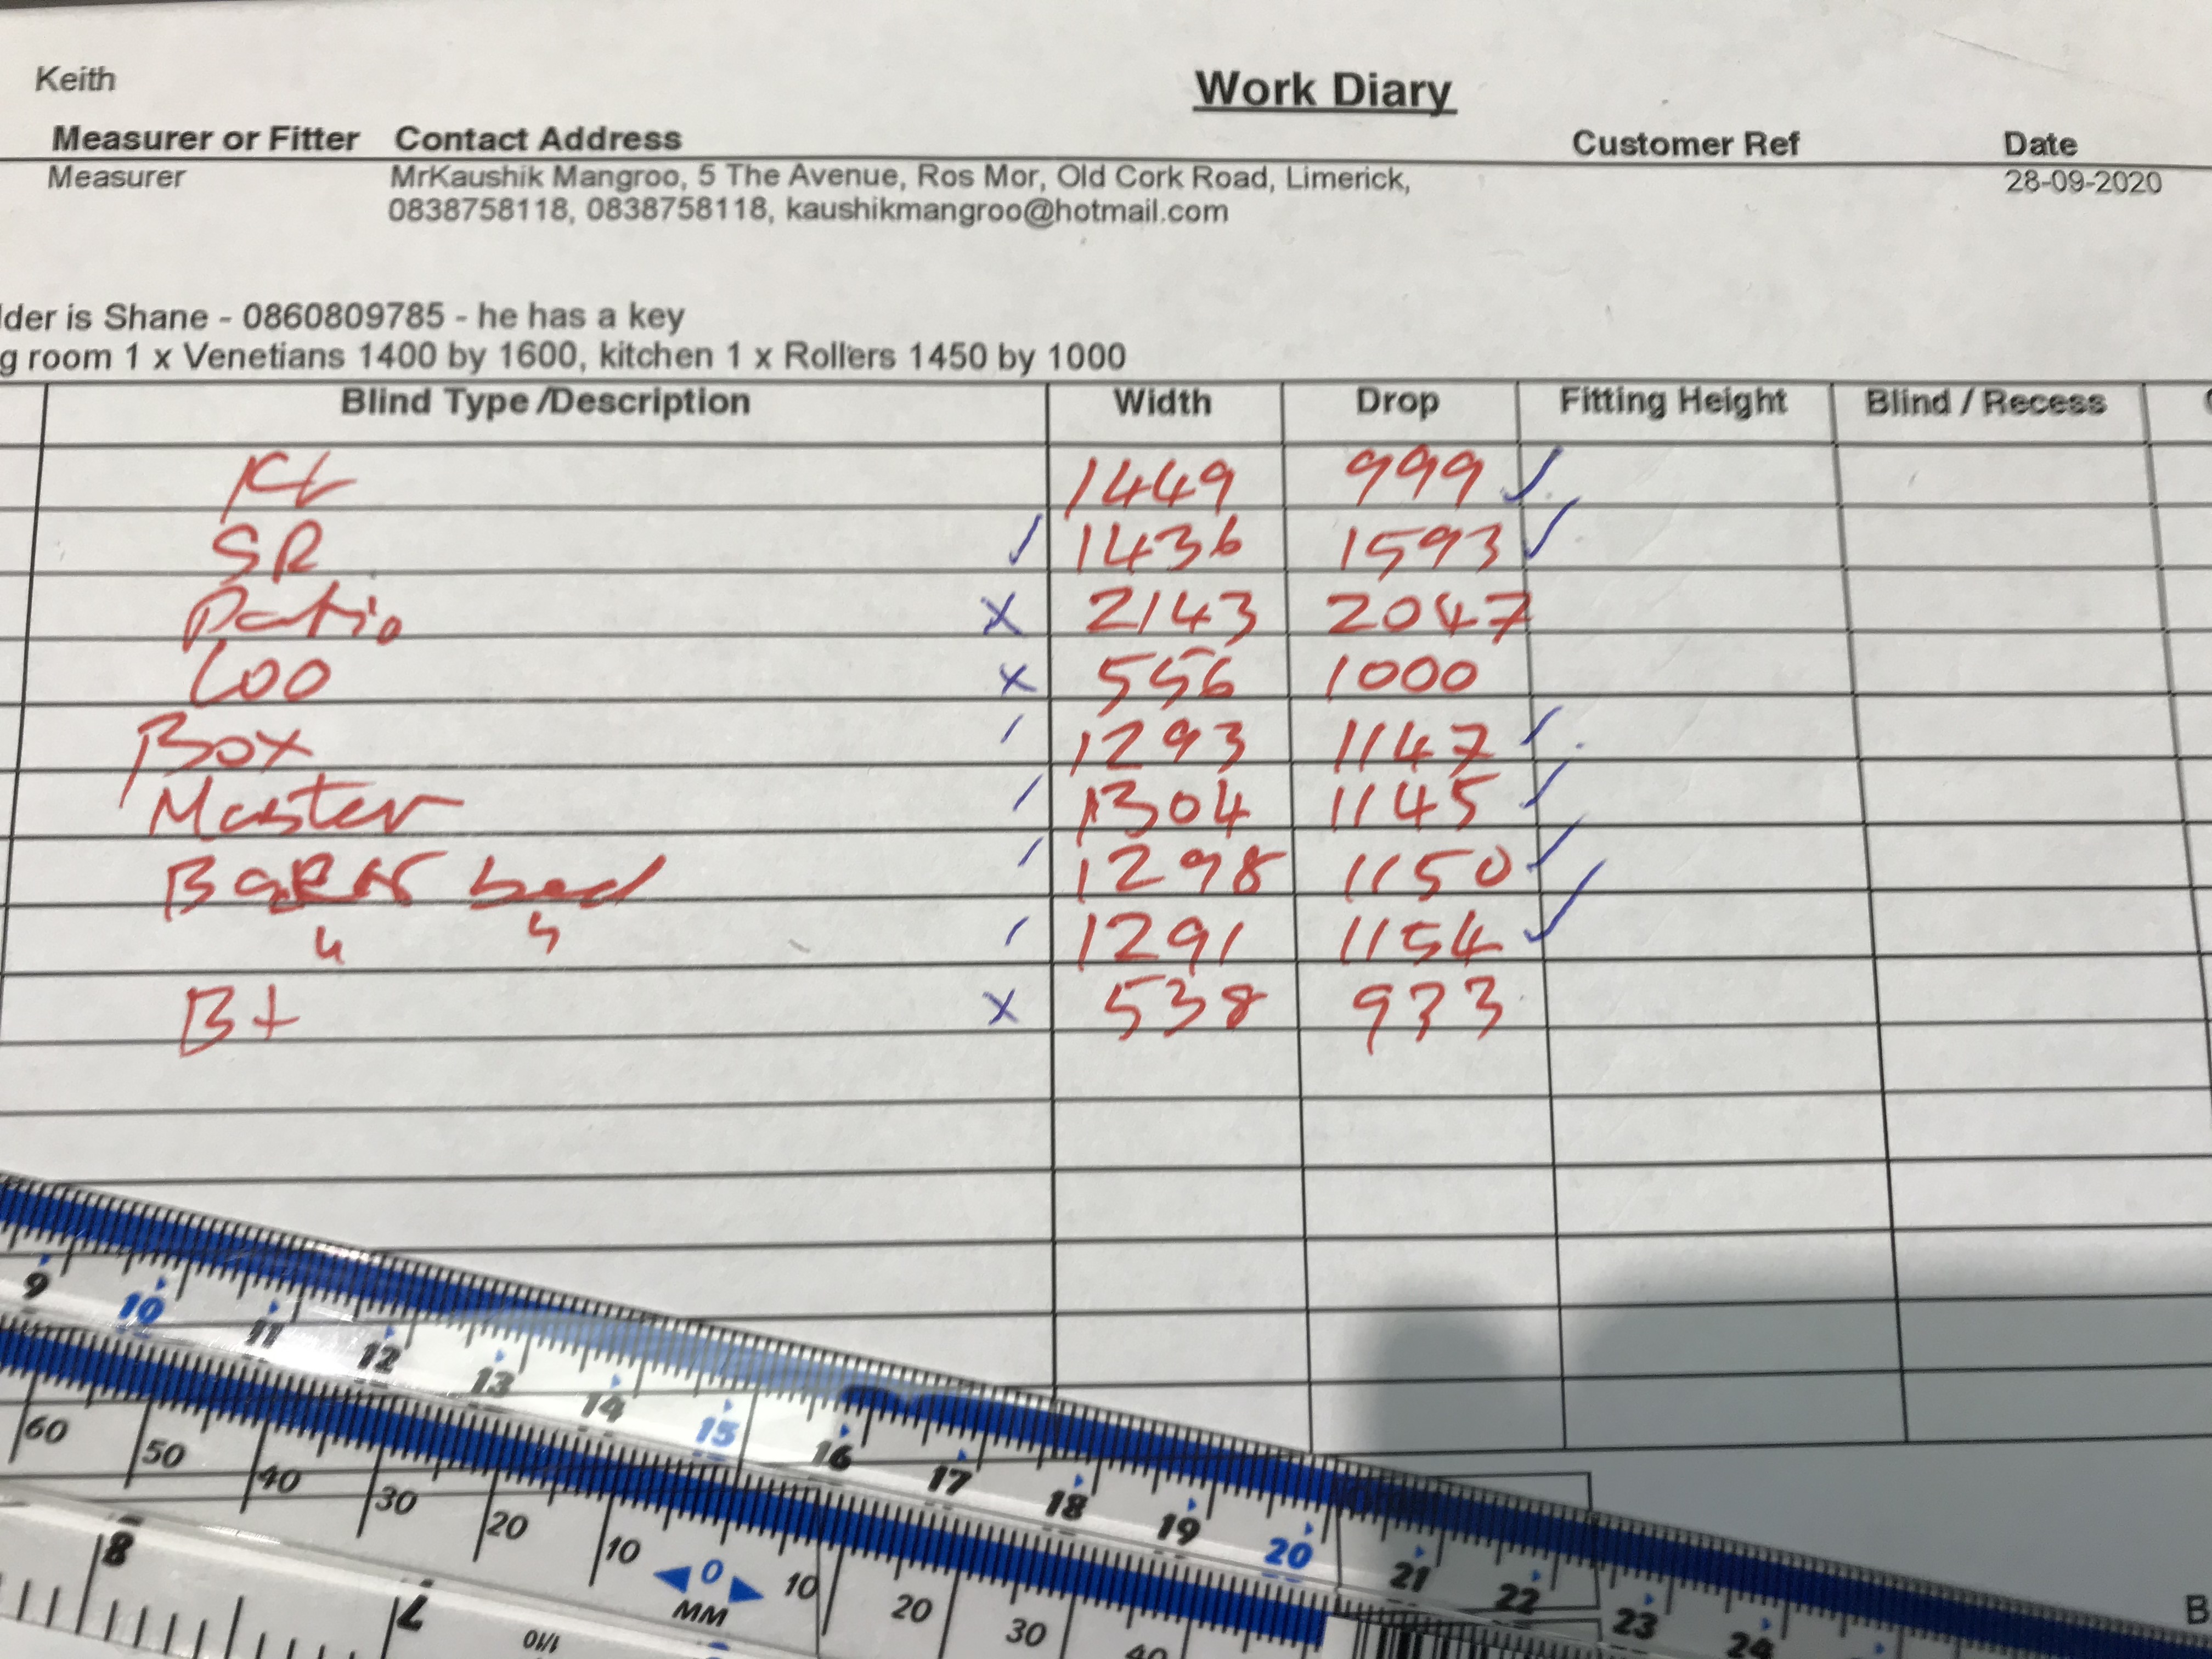 Keith
Work Diary
Measurer or Fitter Contact Address Customer Ref Date
Measurer MrKaushik Mangroo, 5 The Avenue, Ros Mor, Old Cork Road, Limerick, 28-09-2020
0838758118, 0838758118, kaushikmangroo@hotmail.com
lder is Shane - 0860809785 - he has a key
g room 1 x Venetians 1400 by 1600, kitchen 1 x Rollers 1450 by 1000
Blind Type /Description Width Drop Fitting Height Blind / Recess
1449 999 ✓
SR ✓ 1436 1593 ✓
Patio x 2143 2047
Loo x 556 1000
Box / 1293 1147 ✓
Master / 1304 1145 ✓
bed / 1298 1150 ✓
/ 1291 1154 ✓
Bt x 538 933
9 10 11 12 13 14 15 16 17 18 19 20 21 22 23 24
60 50 40 30 20 10 0 10 20 30 40
MM
8 7
1/10
B